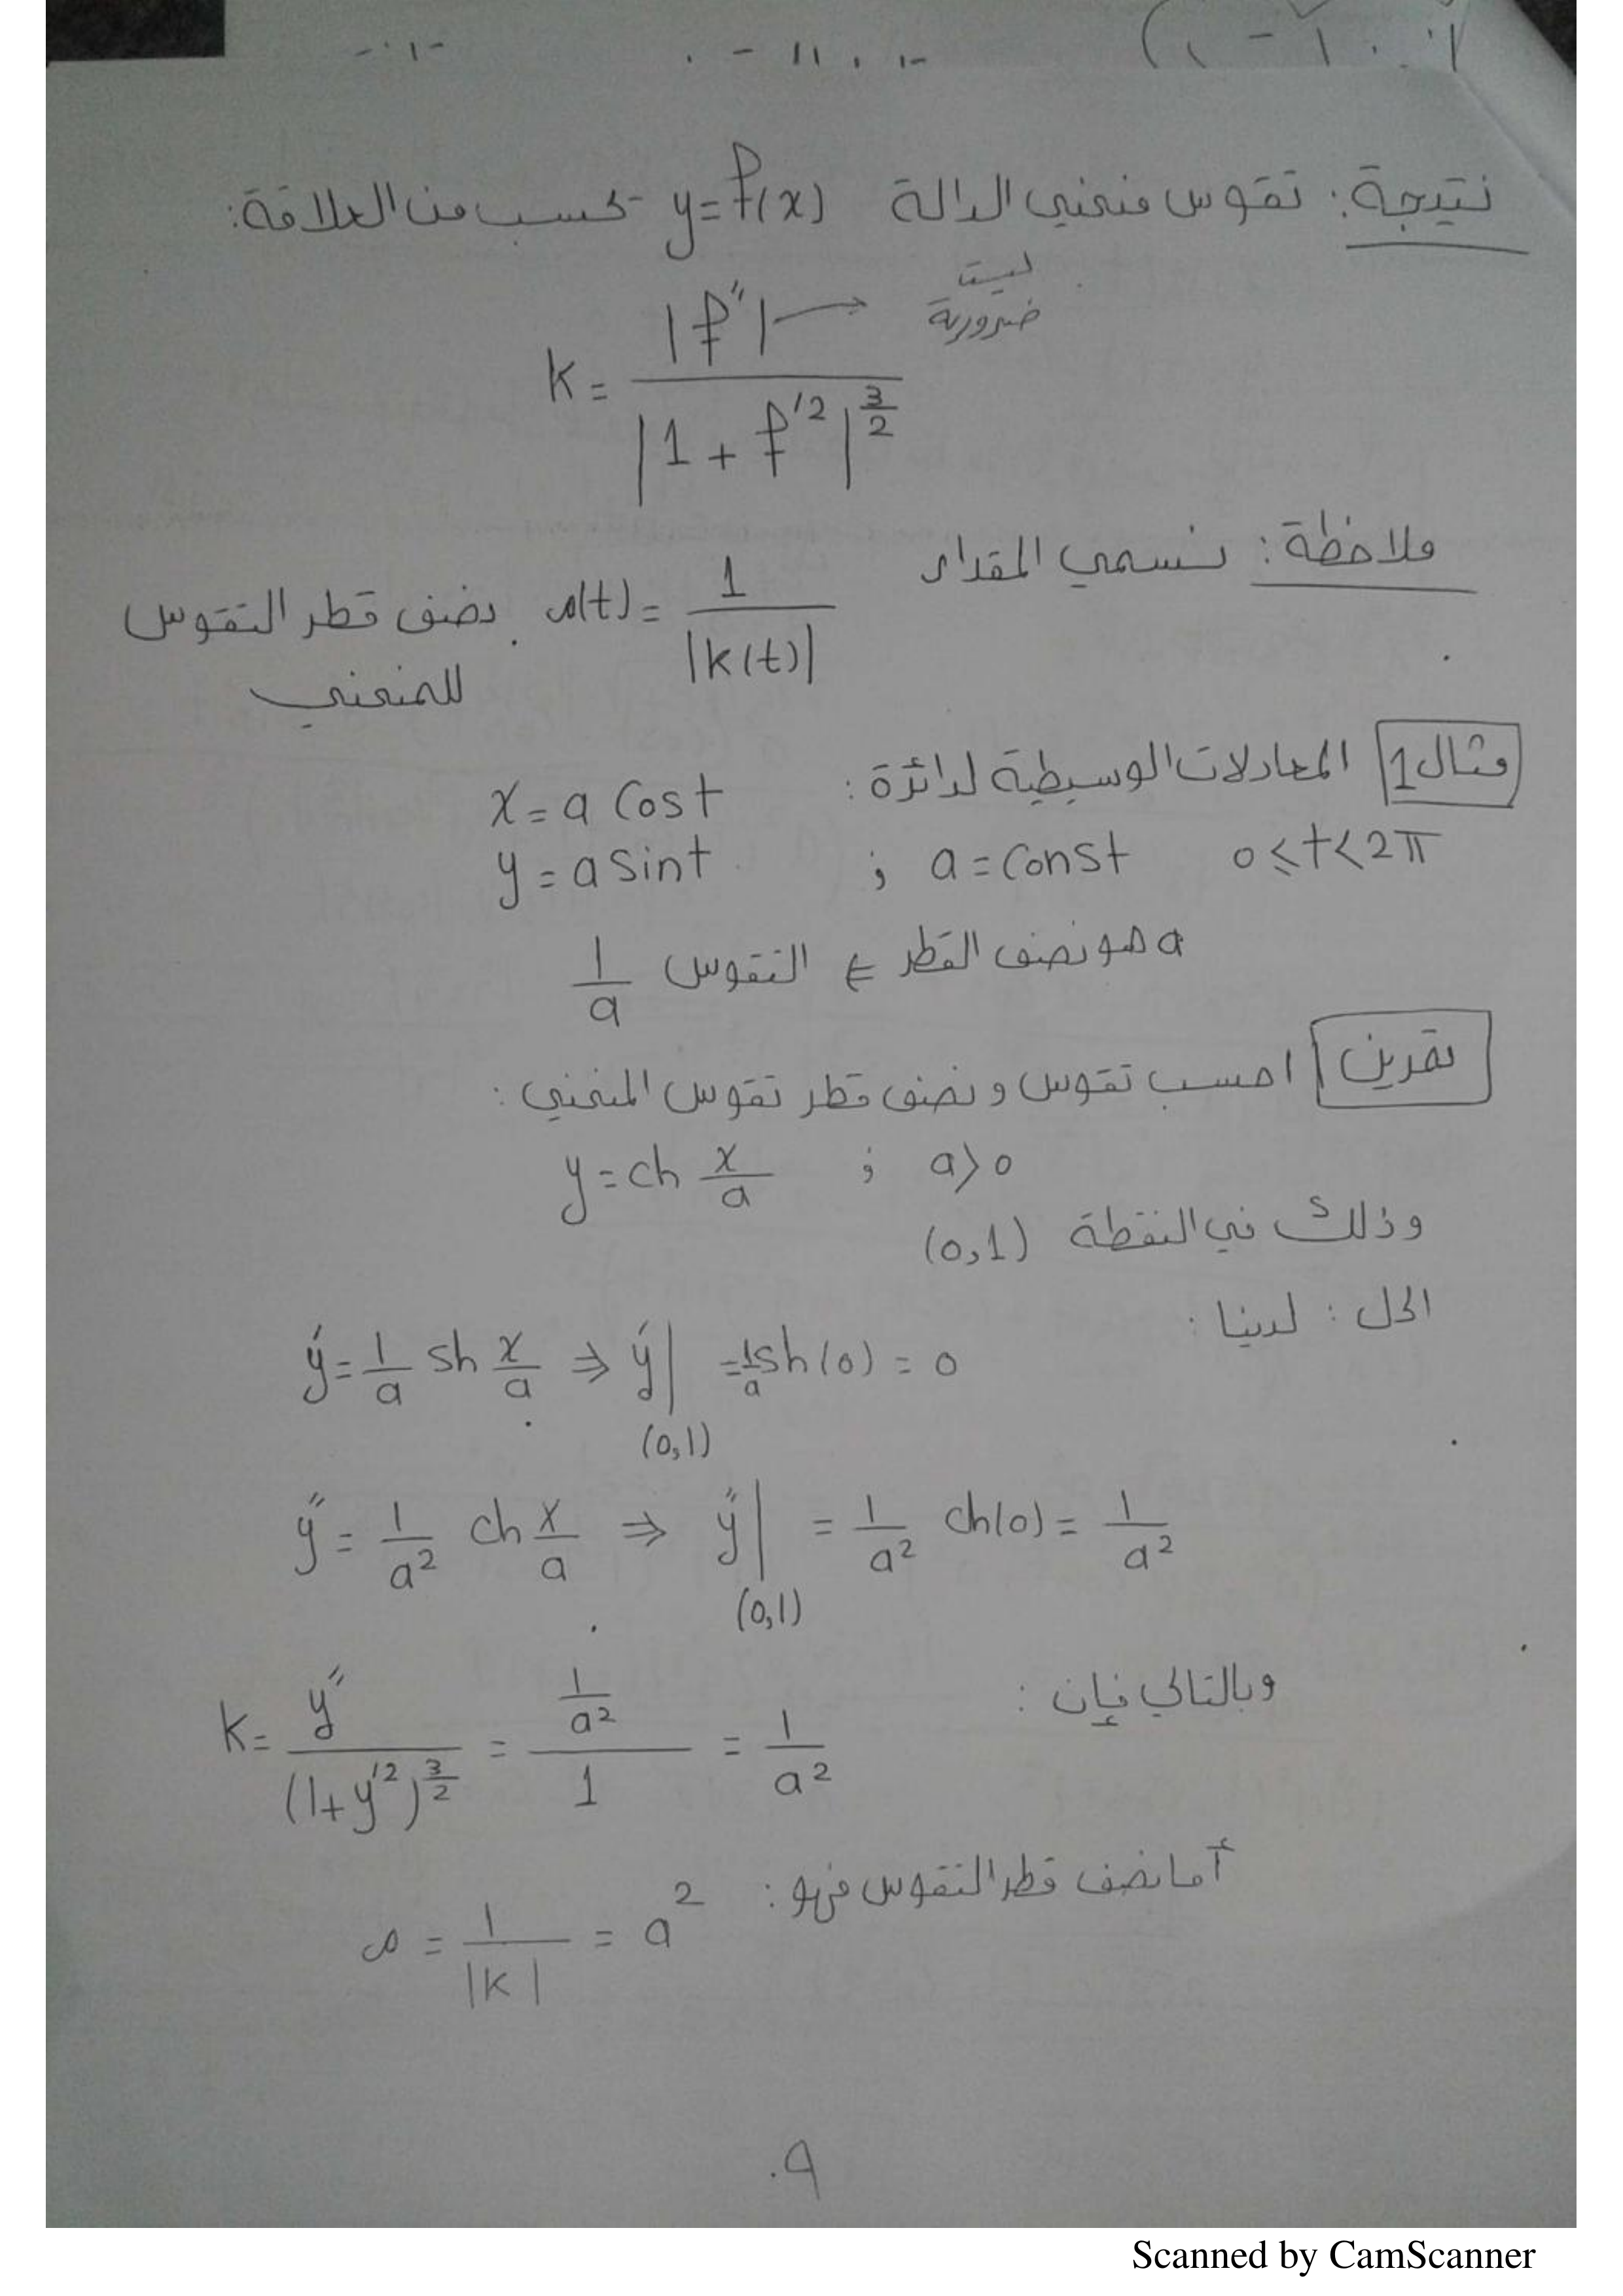 نتيجة: تقوس منحني الدالة y=f(x) يحسب من العلاقة:
k = |f″| / |1 + f′²|^(3/2) → ليست ضرورية
ملاحظة: نسمي المقدار
ρ(t) = 1 / |k(t)| نصف قطر التقوس
للمنحني
مثال 1 المعادلات الوسيطية لدائرة: x = a cos t
y = a sin t ; a = const 0 ≤ t < 2π
a هو نصف القطر ⇐ التقوس 1/a
تمرين احسب تقوس و نصف قطر تقوس المنحني:
y = ch x/a ; a > 0
وذلك في النقطة (0,1)
الحل: لدينا:
y′ = 1/a sh x/a ⇒ y′|(0,1) = 1/a sh(0) = 0
y″ = 1/a² ch x/a ⇒ y″|(0,1) = 1/a² ch(0) = 1/a²
وبالتالي فإن:
k = y″ / (1+y′²)^(3/2) = (1/a²) / 1 = 1/a²
أما نصف قطر التقوس فهو:
ρ = 1/|k| = a²
٩
Scanned by CamScanner